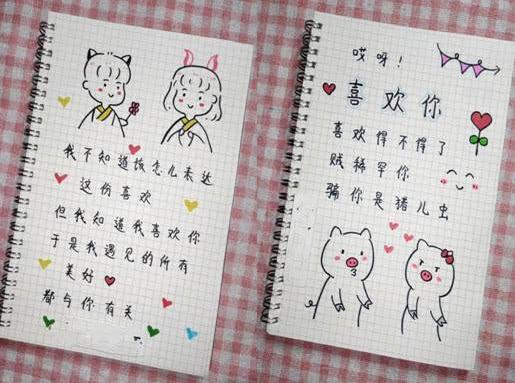 我不知道该怎么表达
这份喜欢
但我知道我喜欢你
于是我遇见的所有
美好
都与你有关
哎呀！
喜欢你
喜欢得不得了
贼稀罕你
骗你是猪儿虫